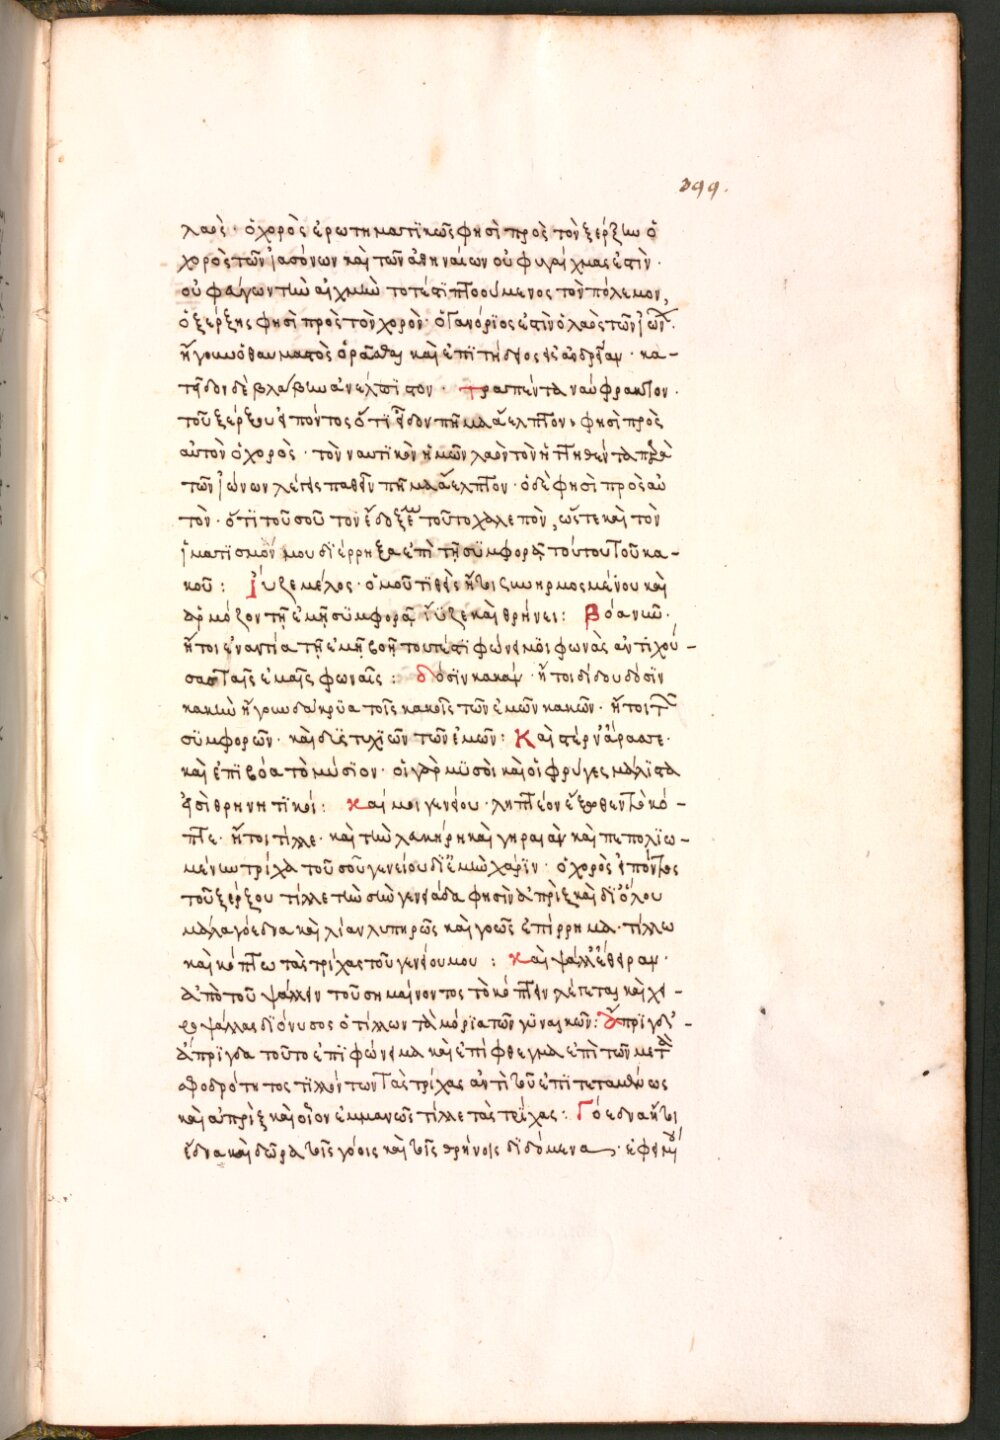 399.
λαὸς · ὁ χορὸς ἐρωτηματϊκῶς φησὶ πρὸς τὸν ξέρξην ὁ
χορὸς τῶν ἰασόνων καὶ τῶν ἀθηναίων οὐ φυγαίχμας ἐστὶν ·
οὐ φεύγων τὴν αἰχμὴν τουτέστι πτοούμενος τὸν πόλεμον,
ὁ ξέρξης φησὶ πρὸς τὸν χορὸν · ὁ γανόριος ἐστὶν ὁ λαὸς τῶν ἰών ·
ἤγουν ὁ θαυμαστὸς ὁρᾶσθαι καὶ ἐπιτήδειος εἰς ἀνδρείαν · κα-
τεῖδον δὲ βλάβην ἀνέλπϊστον · τραπέντα ναύφρακτον ·
τοῦ ξέρξου εἰπόντος ὅτϊ εἶδον πῆμα ἄελπτον, φησὶ πρὸς
αὐτὸν ὁ χορὸς · τὸν ναυτϊκὸν ἡμῶν λαὸν τὸν ἡττηθέντα παρὰ
τῶν ἰώνων λέγεις παθεῖν πῆμα ἄελπτον · ὁ δὲ φησὶ πρὸς αὐ
τὸν · ὅτϊ τοῦ σοῦ τὸν ἔδοξε τοῦτο χαλεπὸν, ὥστε καὶ τὸν
ἱματϊσμόν μου διέρρηξα ἐπὶ τῇ συμφορᾷ τούτου τοῦ κα-
κοῦ : ἴυζε μέλος · ὁμοῦ τϊθεὶς ἤτοι ζωηρμοσμένου καὶ
ἁρμόζον τῇ ἐμῇ συμφορᾷ ἴϋζε καὶ θρήνει : Βόα νῦν ·
ἤτοι ἐναντία τῇ ἐμῇ βοῇ τουτέστϊ φώνει μοι φωνὰς ἀντϊχού-
σας ταῖς ἐμαῖς φωναῖς : δόσϊν κακὰν · ἤτοι δίδου δόσϊν
κακὴν ἤγουν δάκρϋα τοῖς κακοῖς τῶν ἐμῶν κακῶν · ἤτοι τῶν
συμφορῶν · καὶ δυστυχϊῶν τῶν ἐμῶν : Καὶ στέρν' ἄρασσε ·
καὶ ἐπϊβόα τὸ μύσϊον · οἱ γὰρ μϋσοὶ καὶ οἱ φρύγες μάλϊστα
εἰσὶ θρηνητϊκοί : καί μοι γενείου · ληπτέον ἔξωθεν τὸ κό-
πτε · ἤτοι τίλλε · καὶ τὴν λευκήρη καὶ γηραιὰν καὶ πεπολϊω-
μένην τρίχα τοῦ σοῦ γενείου δι' ἐμὴν χάρϊν · ὁ χορὸς εἰπόντος
τοῦ ξέρξου τίλλε τὴν σὴν γενειάδα φησὶν ἀπρὶξ καὶ δι' ὅλου
μάλα γόεδνα καὶ λίαν λυπηρῶς καὶ γοεῶς ἐπίρρημα · τίλλω
καὶ κόπτω τὰς τρίχας τοῦ γενείου μου : καὶ ψάλλ' ἔθειραν ·
ἀπὸ τοῦ ψάλλειν τοῦ σημαίνοντος τὸ κόπτειν λέγεται καὶ χει-
ροψάλλας διόνυσος ὁ τίλλων τὰ μόρια τῶν γϋναικῶν : ἄπριγδ' -
ἄπριγδα τοῦτο ἐπϊφώνημα καὶ ἐπίφθεγμα ἐπὶ τῶν μετὰ
σφοδρότητος τϊλλόντων τὰς τρίχας ἀντὶ τοῦ ἐπϊτεταμένως
καὶ ἀπρὶξ καὶ οἷον ἐμμανῶς τίλλε τὰς τρίχας : Γόεδνα ἤτοι
ἕδνα καὶ δῶρα τοῖς γόοις καὶ τοῖς θρήνοις διδόμενα ·